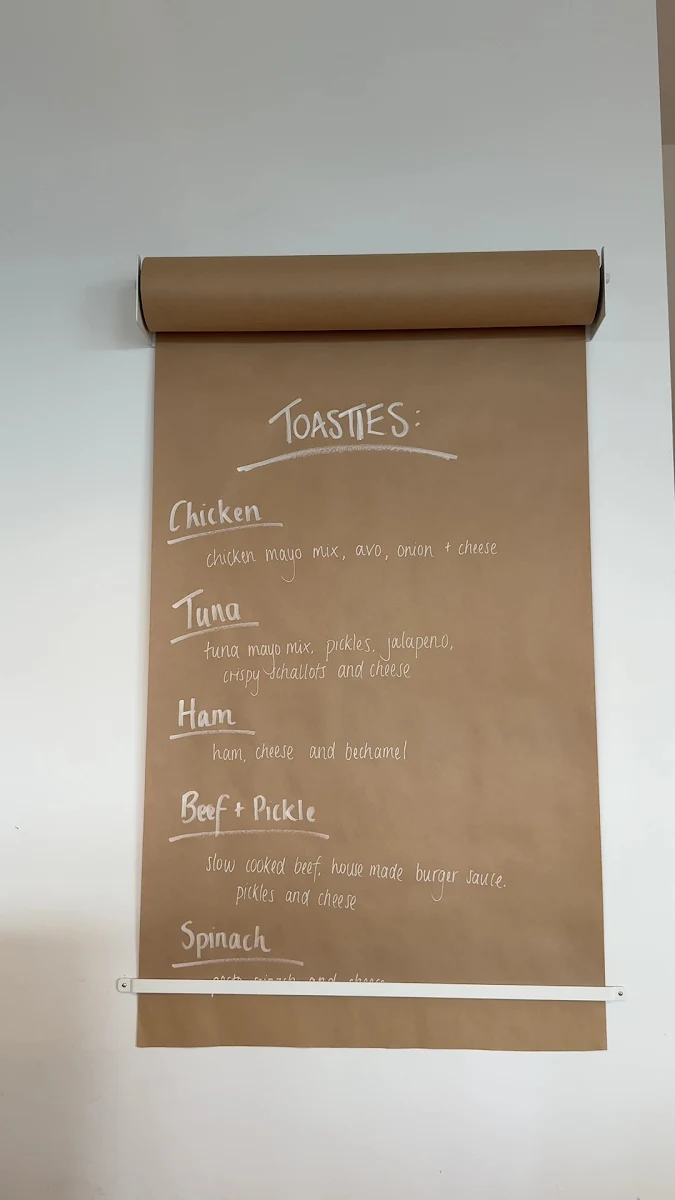 TOASTIES:
Chicken
chicken mayo mix, avo, onion + cheese
Tuna
tuna mayo mix, pickles, jalapeno,
crispy schallots and cheese
Ham
ham, cheese and bechamel
Beef + Pickle
slow cooked beef, house made burger sauce.
pickles and cheese
Spinach
pesto spinach and cheese